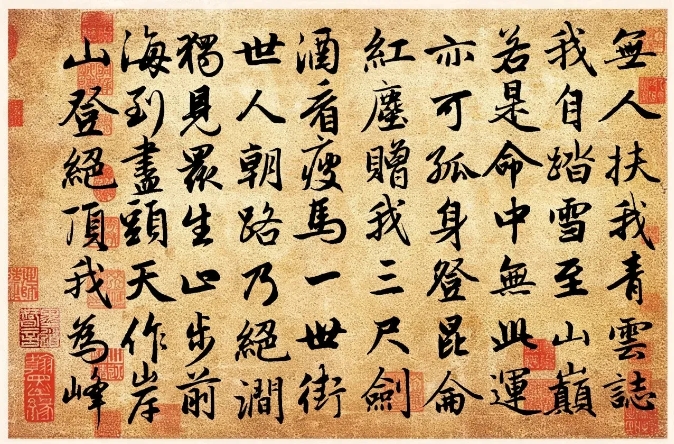 無人扶我青雲誌
我自踏雪至山巔
若是命中無此運
亦可孤身登昆侖
紅塵贈我三尺劍
酒看瘦馬一世街
世人朝路乃絕澗
獨見眾生止步前
海到盡頭天作岸
山登絕頂我為峰